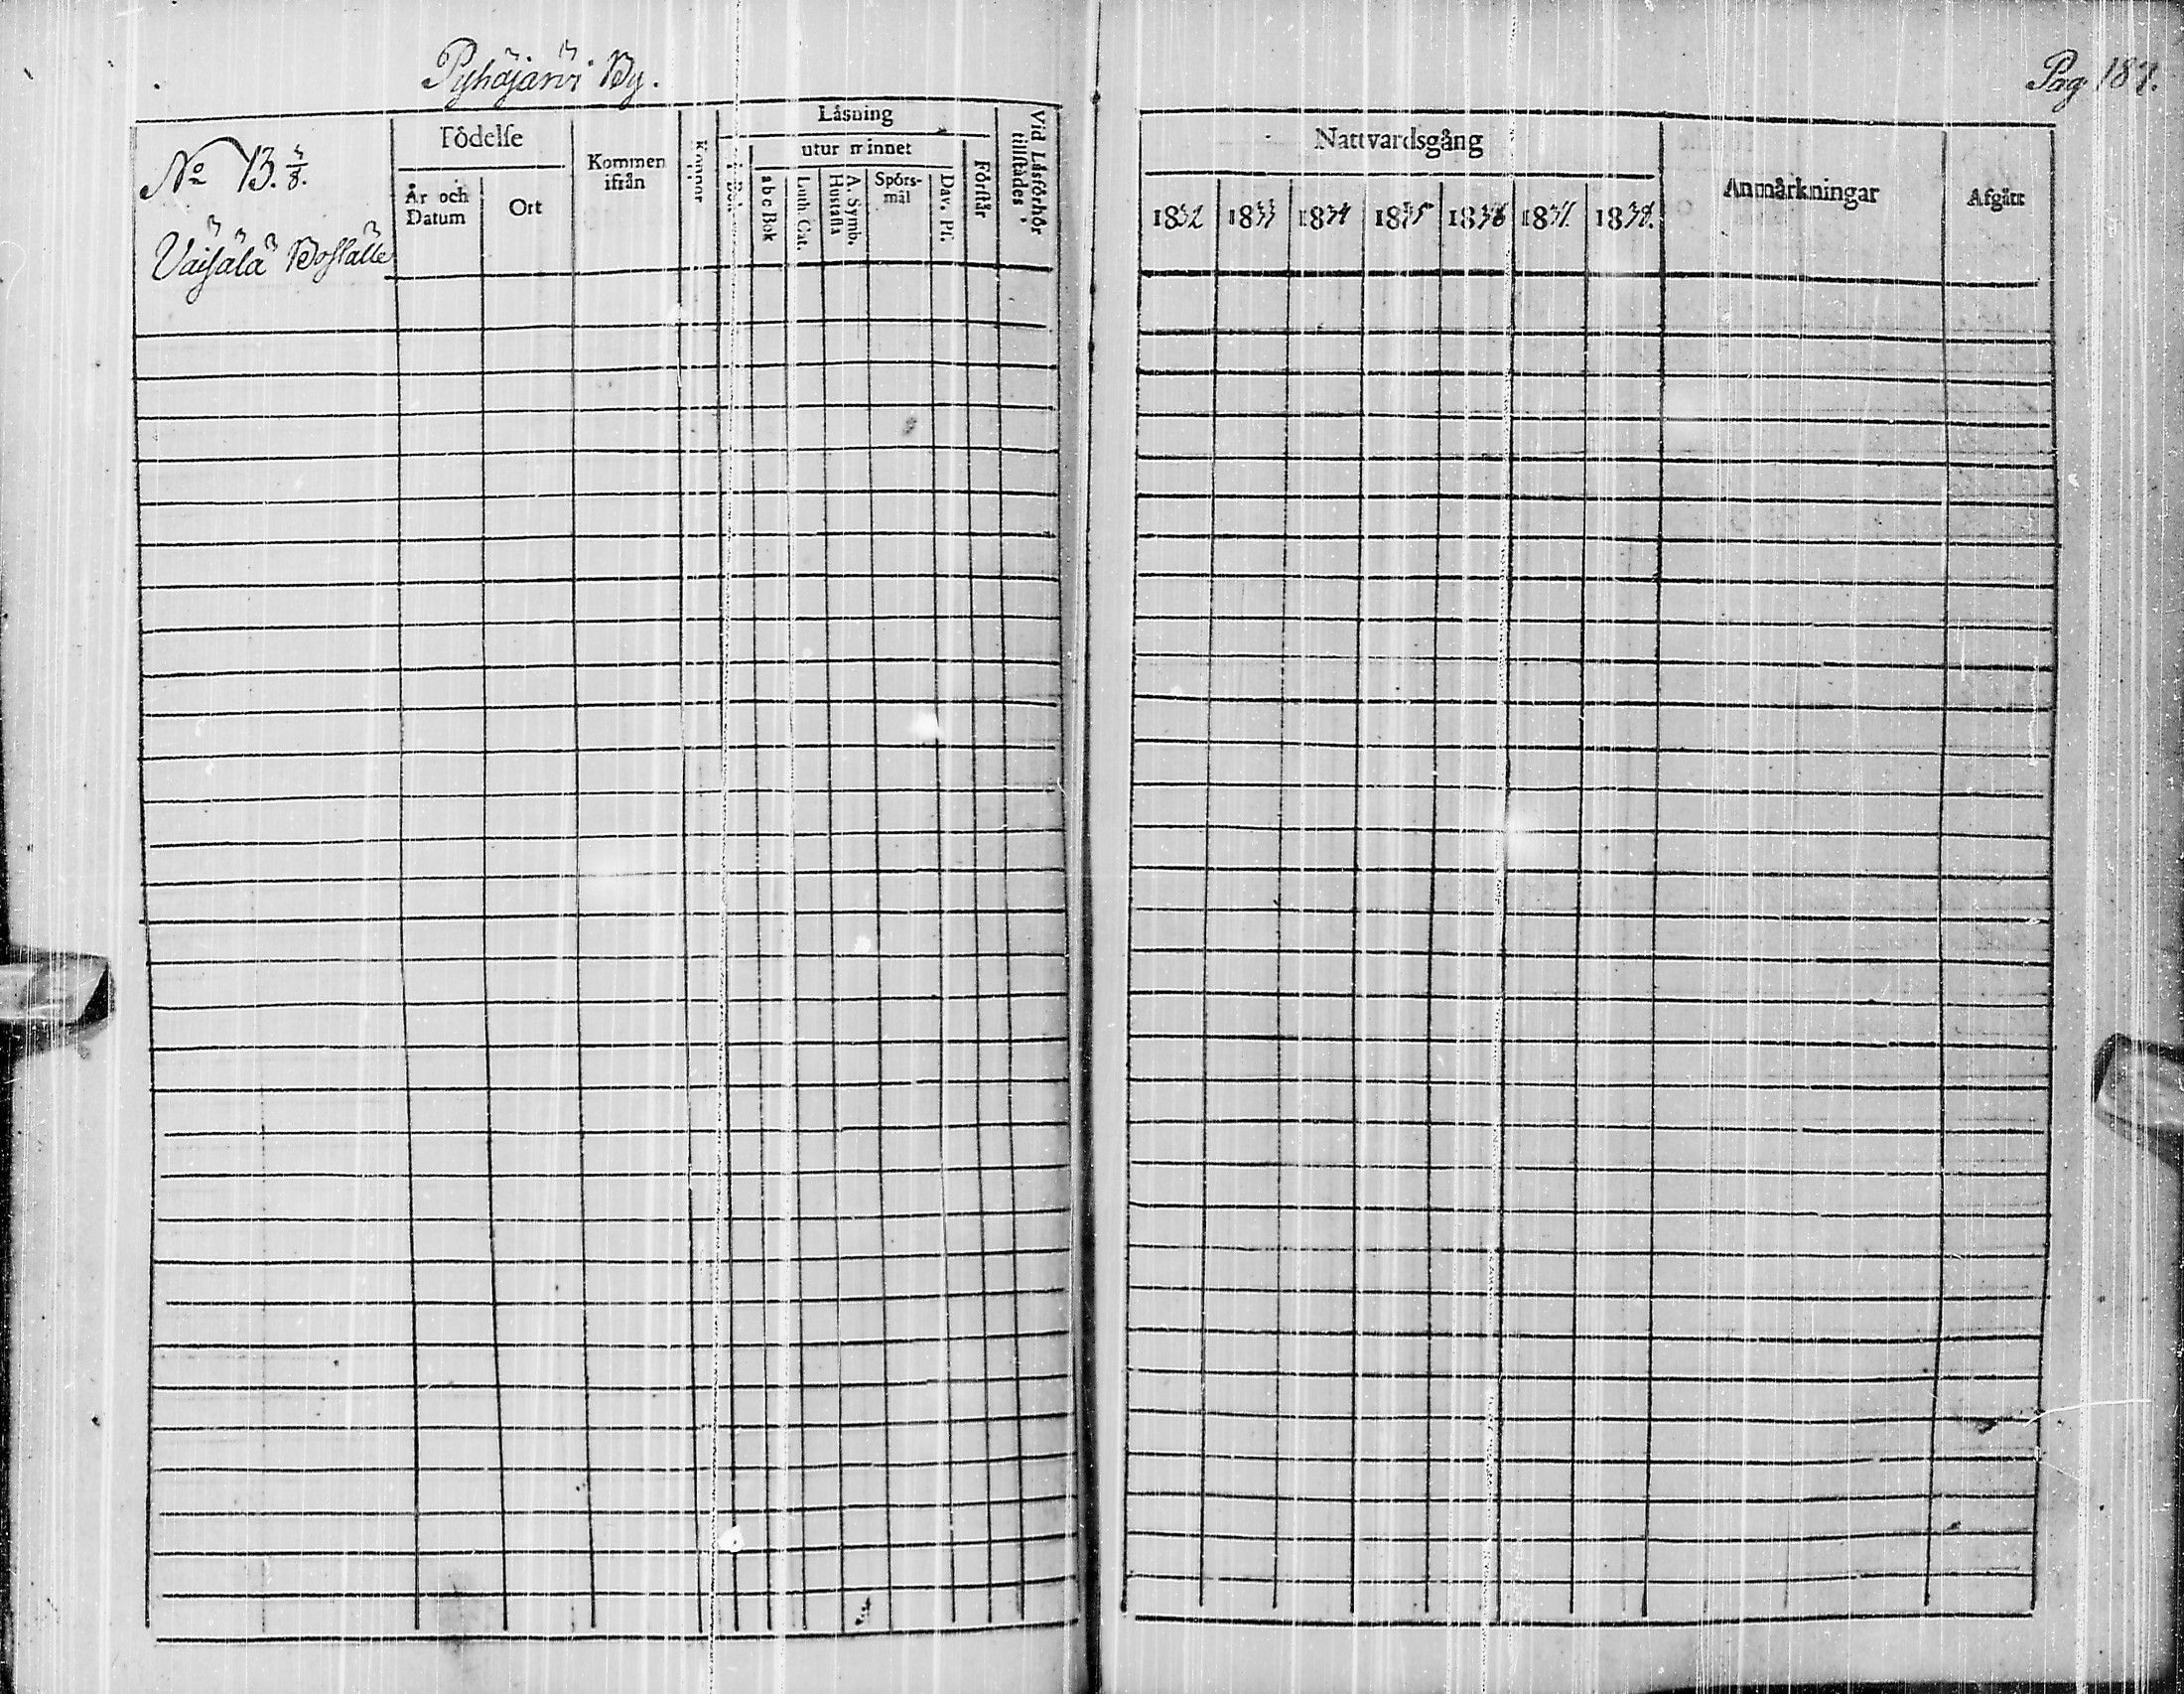 Pyhäjärvi By.
Pag 187.
No 13. 5/8.
Väisälä Boställe
Fódelse
År och
Datum
Ort
Kommen
ifrån
Koppor
Låsning
utur minnet
a b c Bok
Luth. Cat.
A. Symb.
Hustafla
Spórs-
mål
Dav. Pf.
Fórstår
Vid Låsfórhór
tillstådes
Nattvardsgång
1832 1833 1834 1835 1836 1837. 1838.
Anmårkningar
Afgått